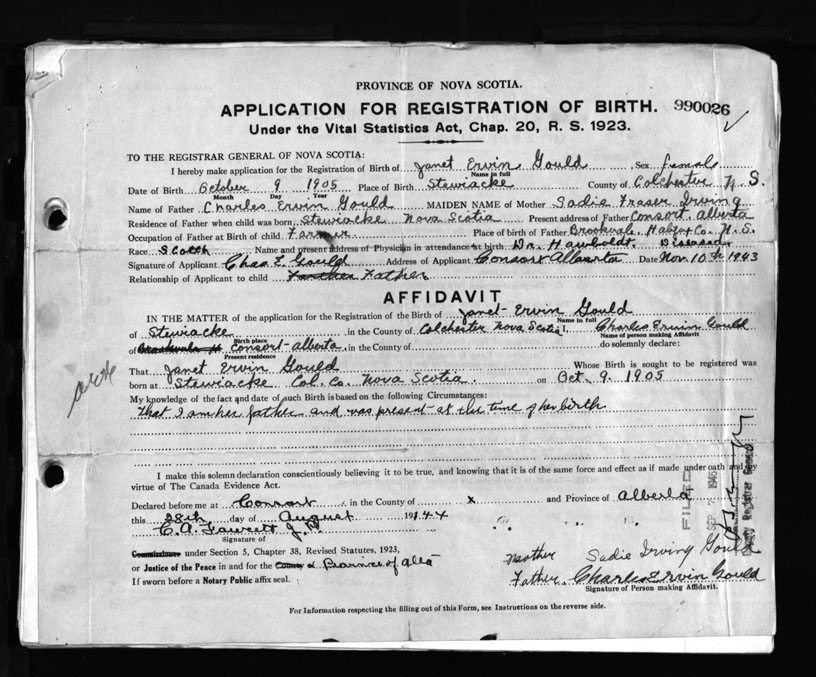 PROVINCE OF NOVA SCOTIA.
APPLICATION FOR REGISTRATION OF BIRTH. 990026
Under the Vital Statistics Act, Chap. 20, R. S. 1923.
TO THE REGISTRAR GENERAL OF NOVA SCOTIA:
I hereby make application for the Registration of Birth of Janet Ervin Gould Sex female
Name in full
Date of Birth October 9 1905 Place of Birth Stewiacke County of Colchester N. S.
Month Day Year
Name of Father Charles Ervin Gould MAIDEN NAME of Mother Sadie Fraser Irving
Residence of Father when child was born Stewiacke Nova Scotia Present address of Father Consort, Alberta
Occupation of Father at Birth of child Farmer Place of birth of Father Brookvale, Halifax Co. N. S.
Race Scotch Name and present address of Physician in attendance at birth Dr. Hawboldt. Diseased.
Signature of Applicant Chas E. Gould Address of Applicant Consort Alberta Date Nov. 10th 1943
Relationship of Applicant to child Father
AFFIDAVIT
IN THE MATTER of the application of the Registration of the Birth of Janet Ervin Gould
Name in full
of Stewiacke in the County of Colchester Nova Scotia I, Charles Ervin Gould
Birth place Name of person making Affidavit
of Consort Alberta in the County of do solemnly declare:
Present residence
That Janet Ervin Gould Whose Birth is sought to be registered was
born at Stewiacke Col. Co. Nova Scotia. on Oct. 9. 1905
My knowledge of the fact and date of such Birth is based on the following Circumstances:
That I am her father and was present at the time of her birth
I make this solemn declaration conscientiously believing it to be true, and knowing that it is of the same force and effect as if made under oath and by
virtue of The Canada Evidence Act.
Declared before me at Consort in the County of x and Province of Alberta
this 28th day of August 1944
C. A. Fawcett J. P.
Signature of
Commissioner under Section 5, Chapter 38, Revised Statutes, 1923,
or Justice of the Peace in and for the County of Province of Alta
If sworn before a Notary Public affix seal.
Mother Sadie Irving Gould
Father. Charles Ervin Gould
Signature of Person making Affidavit.
For Information respecting the filling out of this Form, see Instructions on the reverse side.
FILED